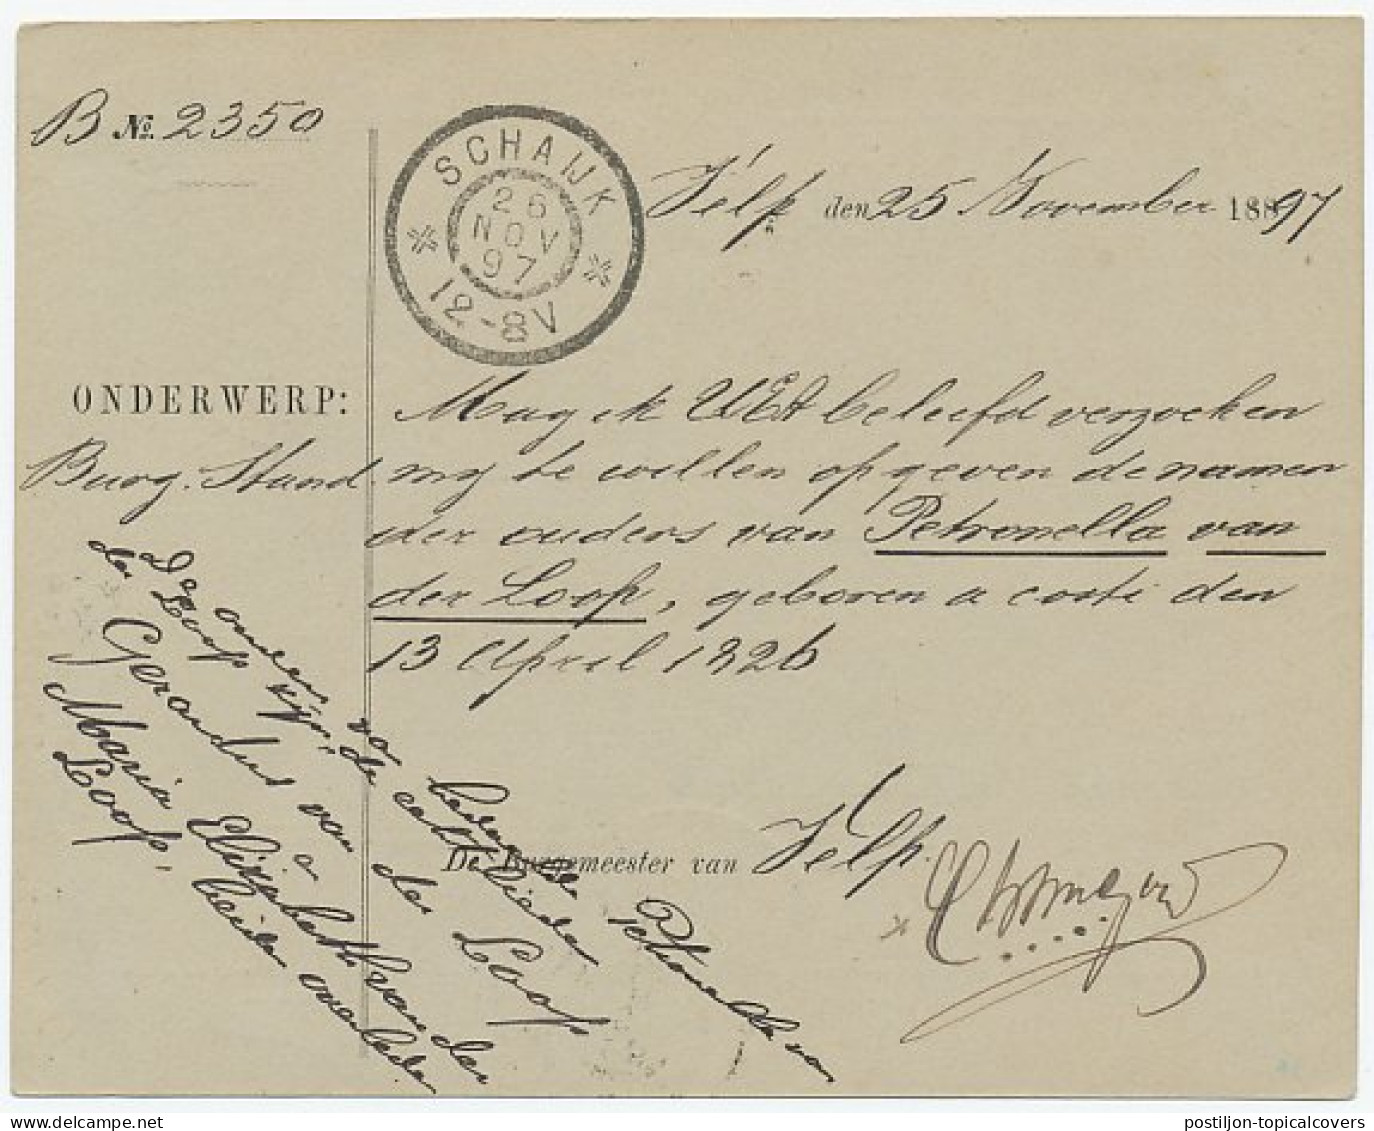 B No. 2350
SCHAIJK
26
NOV
97
12-8V
Velp den 25 November 18897
ONDERWERP:
Burg. Stand.
Mag ik UEA beleefd verzoeken
my te willen opgeven de namen
der ouders van Petronella van
der Loop, geboren a costi den
13 April 1826
De Burgemeester van Velp.
De ouders van bedoelde Petronella van
der Loop zijn, de echtelieden
Gerardus van der Loop
a
Maria Elizabeth van der
Loop, beiden overleden
postiljon-topicalcovers